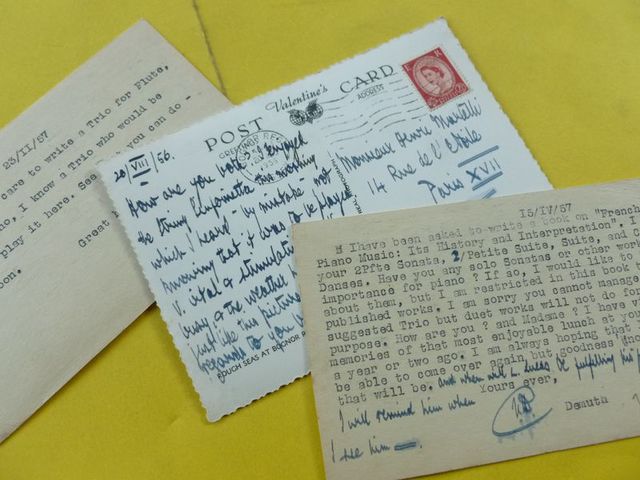 23/II/57
care to write a Trio for Flute,
I know a Trio who would be
play it here. See you can do -
Great
oon.
POST CARD
Valentine's
ADDRESS
20/VIII/56.
How are you both? I enjoyed
the string Sinfonietta this morning
which I heard - by mistake - not
knowing that it was to be played
V. vital & stimulating
& the weather
Just like this picture
regards to you
ROUGH SEAS AT BOGNOR R
Monsieur Henri Martelli
14 Rue de l'Etoile
Paris XVII
15/IV/57
I have been asked to write a book on "French
Piano Music: Its History and Interpretation". I
your 2Pfte Sonata, 2/Petite Suite, Suite, and
Danses. Have you any solo Sonatas or other wor
importance for piano ? If so, I would like to
about them, but I am restricted in this book
published works. I am sorry you cannot manage
suggested Trio but duet works will not do for
purpose. How are you ? and Madame ? I have
memories of that most enjoyable lunch at you
a year or two ago. I am always hoping that
be able to come over again but goodness
that will be. and when will L. Lucas be fulfilling his
Yours ever,
I will remind him when
Demuth
I see him